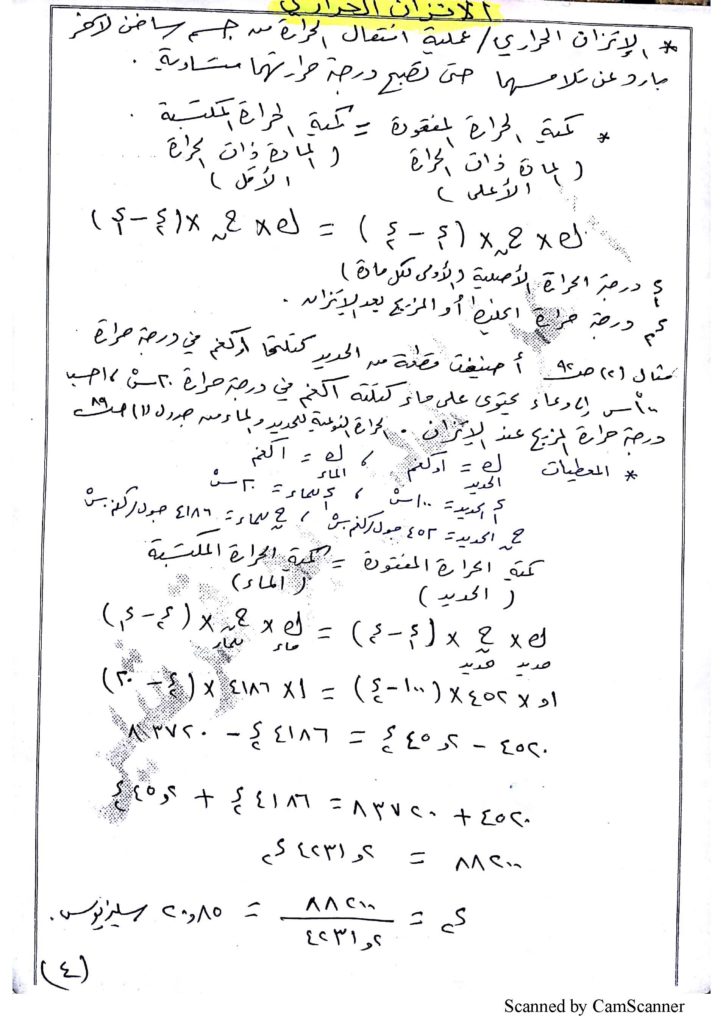 الاتزان الحراري
* الإتزان الحراري / عملية انتقال الحرارة من جسم ساخن لآخر
بارد عن تلامسهما حتى تصبح درجة حرارتهما متساوية .
* كمية الحرارة المفقودة = كمية الحرارة المكتسبة .
( المادة ذات الحرارة الأعلى ) ( المادة ذات الحرارة الأقل )
ك × حـن × (د١ - د٢) = ك × حـن × (د٢ - د١)
د١ درجة الحرارة الأصلية والأولى لكل مادة )
د٢ درجة حرارة الخليط أو المزيج بعد الإتزان .
مثال (٢) صـ٩٢ أضيفت قطعة من الحديد كتلتها ١و كغم في درجة حرارة
١٠٠ْس إلى وعاء يحتوي على ماء كتلته ١كغم في درجة حرارة ٢٠ْس ، احسب
درجة حرارة المزيج عند الإتزان . الحرارة النوعية للحديد والماء من جدول (١) صـ٨٩
* المعطيات ك الحديد = ١و كغم ، ك الماء = ١كغم
د١ الحديد = ١٠٠ْس ، د١ للماء = ٢٠ْس
حـن الحديد = ٤٥٢ جول/كغم.ْس ، حـ للماء = ٤١٨٦ جول/كغم.ْس
كمية الحرارة المفقودة = كمية الحرارة المكتسبة
( الحديد ) ( الماء )
ك حديد × حـ حديد × (د١ - د٢) = ك ماء × حـن للماء × (د٢ - د١)
١و × ٤٥٢ × (١٠٠ - د٢) = ١ × ٤١٨٦ × (د٢ - ٢٠)
٤٥٢٠ - ٢و٤٥ د٢ = ٤١٨٦ د٢ - ٨٣٧٢٠
٤٥٢٠ + ٨٣٧٢٠ = ٤١٨٦ د٢ + ٢و٤٥ د٢
٨٨٢٠٠ = ٢و٤٢٣١ د٢
د٢ = ٨٨٢٠٠ / ٢و٤٢٣١ = ٨٥و٢٠ سيلزيوس .
(٤)
Scanned by CamScanner